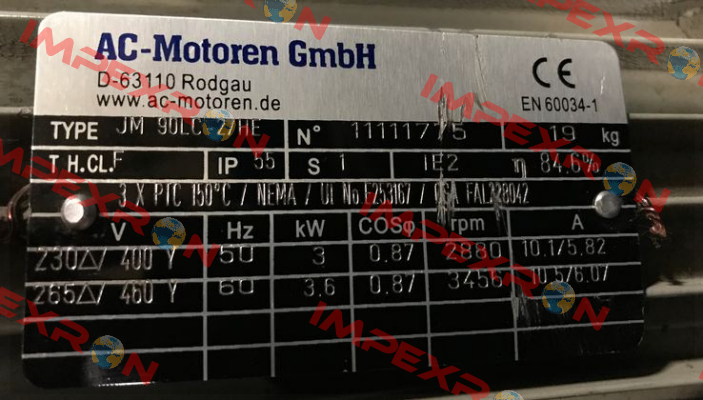 AC-Motoren GmbH
D-63110 Rodgau
www.ac-motoren.de
CE
EN 60034-1
TYPE JM 90LC-2/HE N° 11111775 19 kg
T H.CL.F IP 55 S 1 IE2 η 84.6%
3 X PTC 150°C / NEMA / UI No E253167 / FAL228042
V Hz kW COSφ rpm A
230Δ/ 400 Y 50 3 0.87 2880 10.1/5.82
265Δ/ 460 Y 60 3.6 0.87 3456 10.5/6.07
IMPEXRON
IMPEXRON
IMPEXRON
IMPEXRON
IMPEXRON